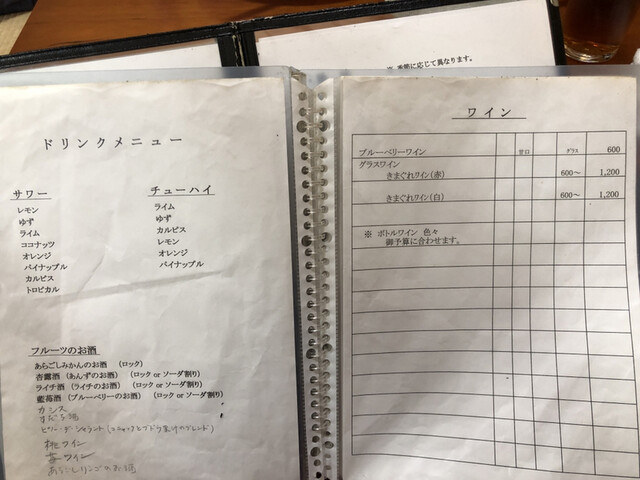 ※ 季節に応じて異なります。
ドリンクメニュー
サワー
レモン
ゆず
ライム
ココナッツ
オレンジ
パイナップル
カルピス
トロピカル
チューハイ
ライム
ゆず
カルピス
レモン
オレンジ
パイナップル
フルーツのお酒
あらごしみかんのお酒 (ロック)
杏露酒 (あんずのお酒) (ロック or ソーダ割り)
ライチ酒 (ライチのお酒) (ロック or ソーダ割り)
藍苺酒 (ブルーベリーのお酒) (ロック or ソーダ割り)
カシス
桃ワイン
苺ワイン
あらごしりんごのお酒
ワイン
ブルーベリーワイン 甘口 グラス 600
グラスワイン
きまぐれワイン(赤) 600～ 1,200
きまぐれワイン(白) 600～ 1,200
※ ボトルワイン 色々
御予算に合わせます。